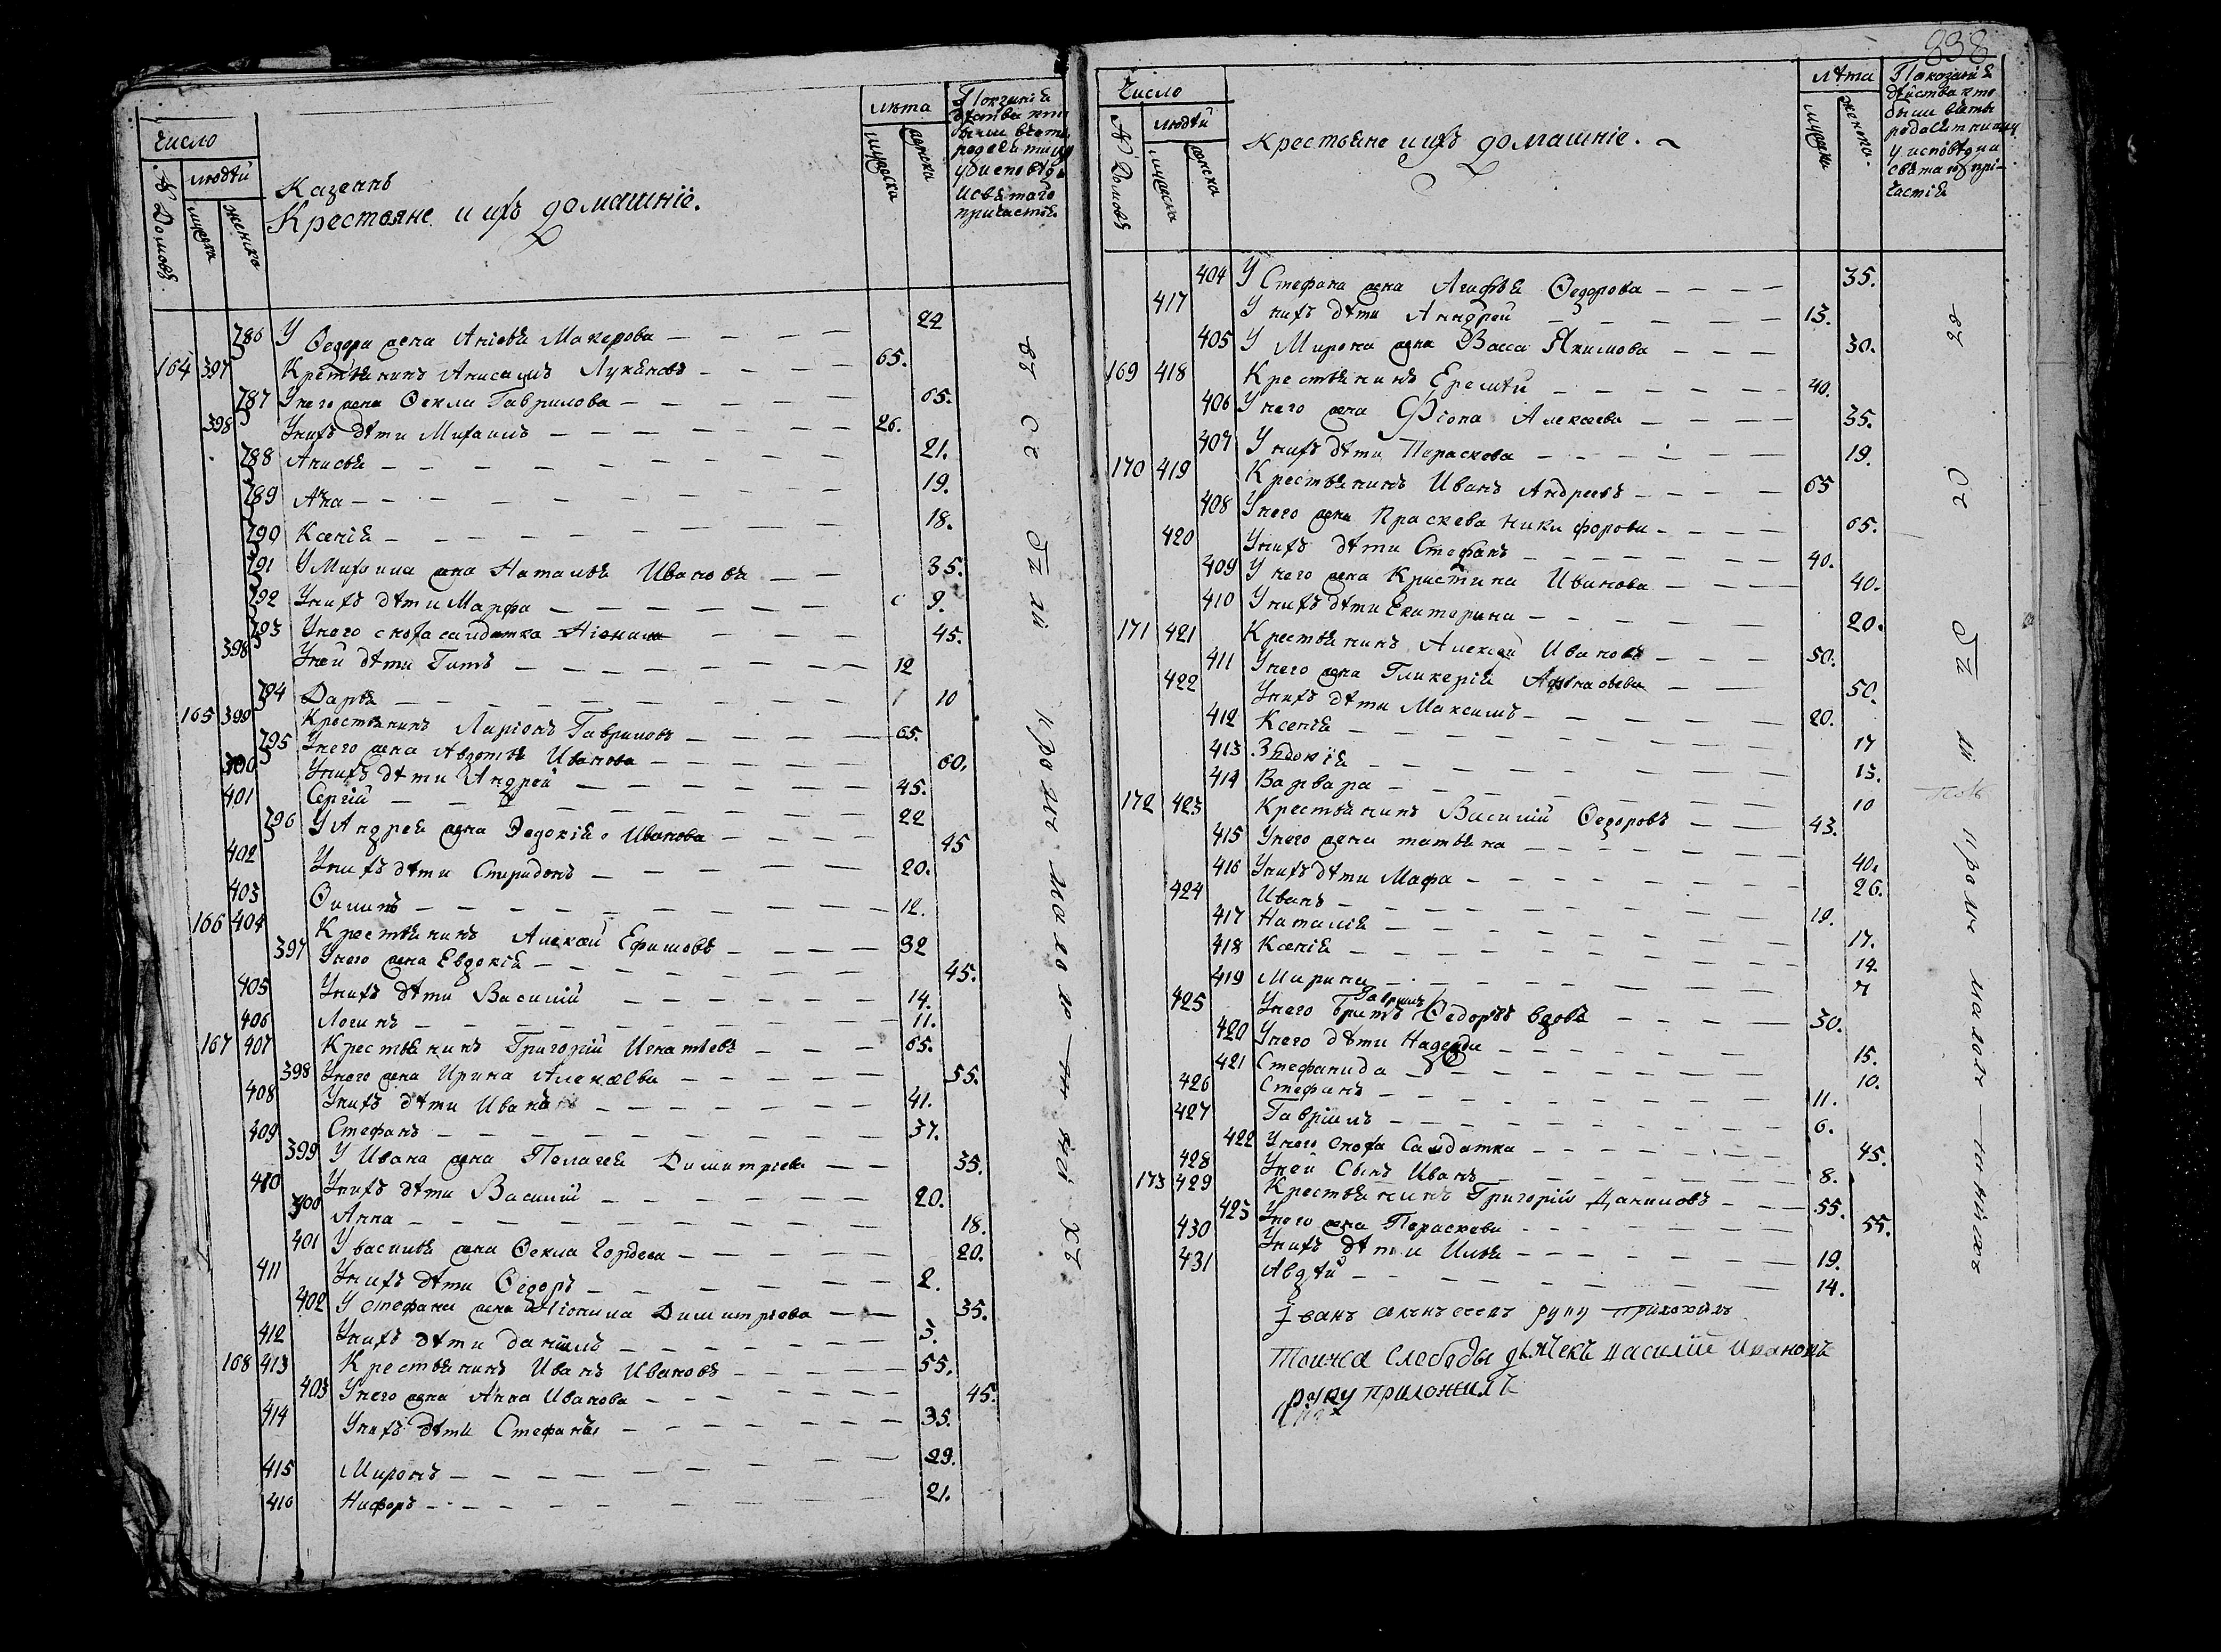 Число
№ Домовъ
людѣй
мужска
женска
Казеннѣ
Крестьяне и ихъ домашніе.
лѣта
мужска
женска
Показаніе
действа кто
были въ сте
родоситницу
у исповѣди
и святаго
причастія
386 У Федора жена Анісья Макерова 22
164 397 Крестьянинъ Анисимъ Лукьяновъ 65.
387 У него жена Фекла Гаврилова 65.
398 У нихъ дѣти Михаилъ 26.
388 Анисья 21.
389 Анна 19.
390 Ксенія 18.
391 У Михаила жена Наталья Иванова 35.
392 У нихъ дѣти Марфа 9.
393 У него сноха салдатка 45.
398 У ней дѣти Титъ 12
394 Дарья 10
165 399 Крестьянинъ Ларіонъ Гавриловъ 65.
395 У него жена Авдотья Иванова 60.
400 У нихъ дѣти Андрей 45.
401 Сергій 22
396 У Андрея жена Эвдокія Иванова 45
402 У нихъ дѣти Спиридонъ 20.
403 Филипъ 12.
166 404 Крестьянинъ Алексѣй Ефимовъ 32
397 У него жена Евдокія 45.
405 У нихъ дѣти Василій 14.
406 Логинъ 11.
167 407 Крестьянинъ Григорій Игнатьевъ 65.
398 У него жена Ирина Алексѣева 55.
408 У нихъ дѣти Иванъ 41.
409 Стефанъ 37.
399 У Ивана жена Пелагея Димитриева 35.
410 У нихъ дѣти Василій 20.
400 Анна 18.
401 У василья жена Фекла Гордеева 20.
411 У нихъ дѣти Федоръ 2.
402 У стефана жена Неонила Димитриева 35.
412 У нихъ дѣти даниилъ 5.
168 413 Крестьянинъ Иванъ Ивановъ 55.
403 У него жена Анна Иванова 45.
414 У нихъ дѣти Стефанъ 35.
415 Миронъ 29.
416 Нифоръ 21.
838
Число
№ Домовъ
людѣй
мужска
женска
Крестьяне и ихъ домашніе.
лѣта
мужска
женска.
Показаніе
действа кто
были въ сте
родоситницу
у исповѣди
святаго при-
частія
404 У Стефана жена Агафья Федорова 35.
417 У нихъ дѣти Андрей 13.
405 У Мирона жена Васса Якимова 30.
169 418 Крестьянинъ Еремѣй 40.
406 У него жена Фіона Алексѣева 35.
407 У нихъ дѣти Параскева 19.
170 419 Крестьянинъ Иванъ Андреевъ 65
408 У него жена Праскева Никифорова 65.
420 У нихъ дѣти Стефанъ 40.
409 У него жена Кристина Иванова 40.
410 У нихъ дѣти Екатерина 20.
171 421 Крестьянинъ Алексѣй Ивановъ 50.
411 У него жена Гликерія Афанасьева 50.
422 У нихъ дѣти Максимъ 20.
412 Ксенія 17
413 Эвдокія 13.
414 Варвара 10
172 423 Крестьянинъ Василій Федоровъ 43.
415 У него жена татьяна 40.
416 У нихъ дѣти Мафа 26.
424 Иванъ 19.
417 Наталія 17.
418 Ксенія 14.
419 Марина 7
425 У него братъ Гаврилъ Федоровъ вдовъ 30.
420 У него дѣти Надежда 15.
421 Стефанида 10.
426 Стефанъ 11.
427 Гавріилъ 6.
422 У него сноха Салдатка 45.
428 У ней Сынъ Иванъ 8.
173 429 Крестьянинъ Григорій Даниловъ 55.
423 У него жена Параскева 55.
430 У нихъ дѣти Илья 19.
431 Авдѣй 14.
руку приложилъ
Тоижа Слободы дьячекъ василіи Ивановъ
руку приложилъ